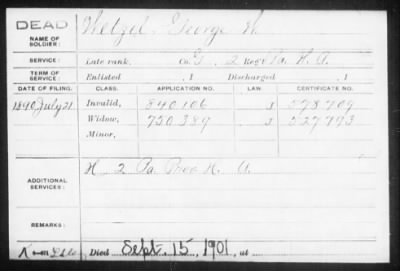 DEAD
NAME OF SOLDIER: Wetzel, George W.
SERVICE: Late rank, Co. G, 2 Reg't Pa. H. A.
TERM OF SERVICE: Enlisted , 1 Discharged , 1
DATE OF FILING. CLASS. APPLICATION NO. LAW. CERTIFICATE NO.
1890 July 21 Invalid, 840106 578709
Widow, 750389 J 527793
Minor,
ADDITIONAL SERVICES: H 2 Pa Prov H. A.
REMARKS:
Died Sept. 15, 1901, at